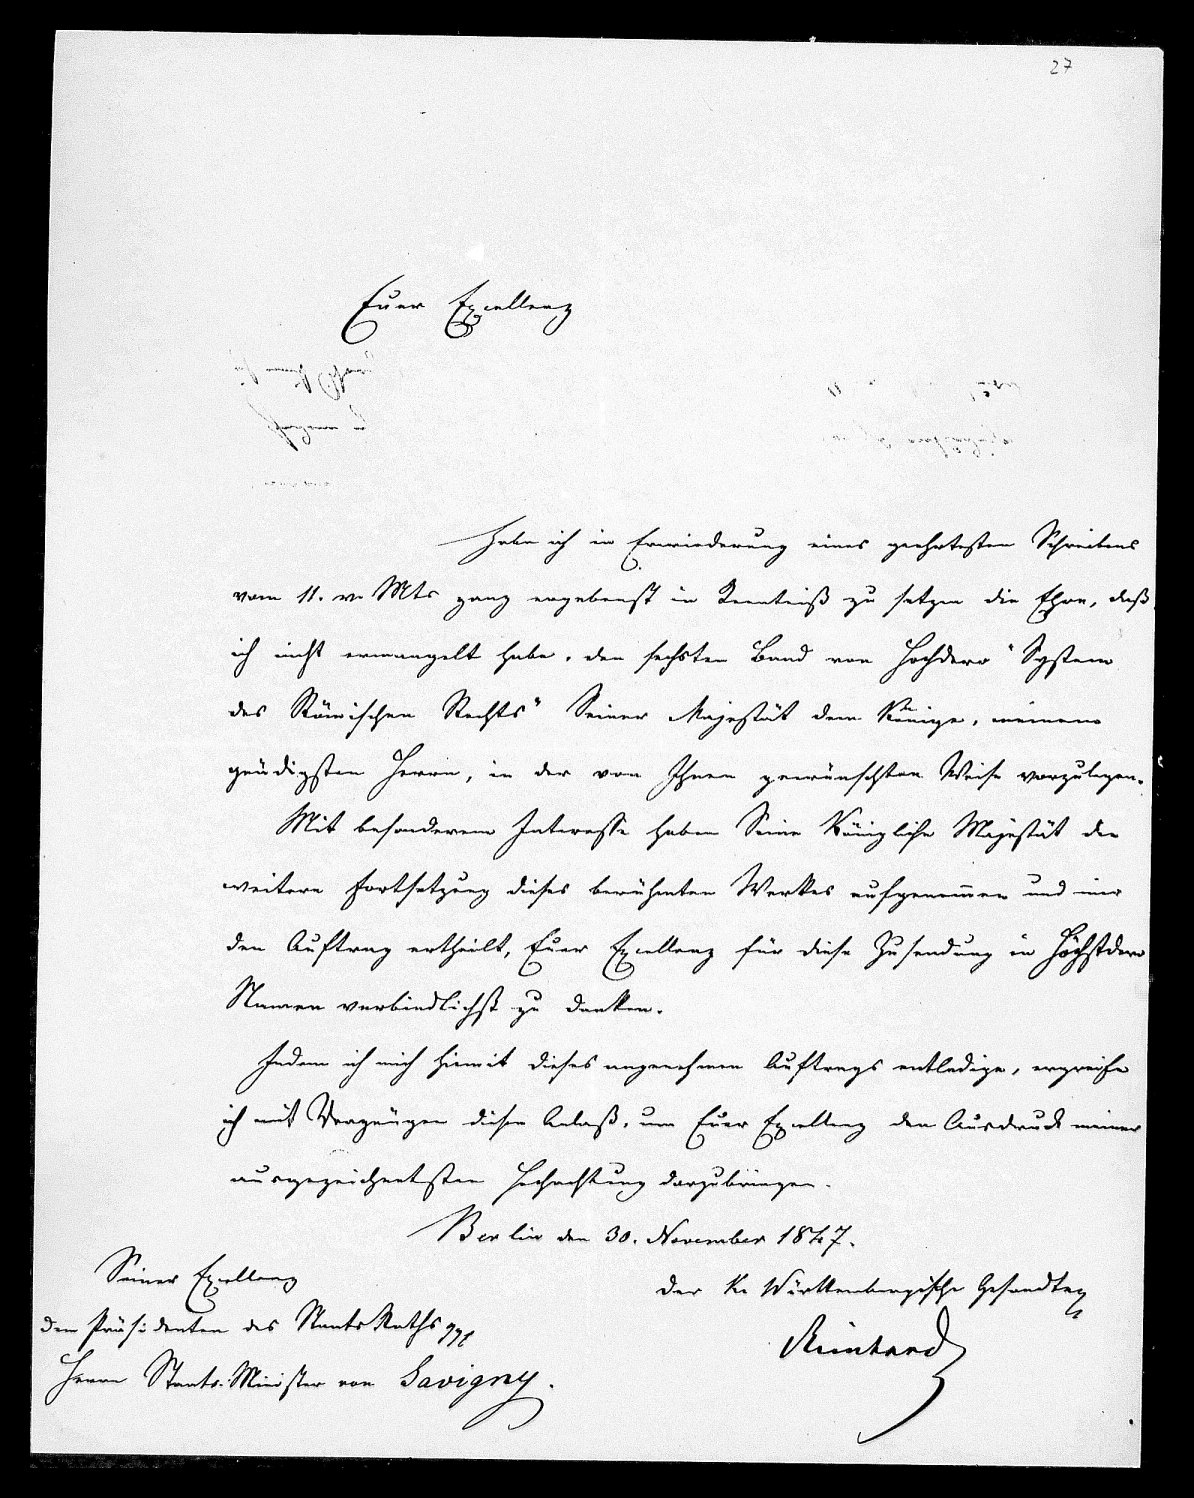 27
Euer Excellenz
habe ich in Erwiederung eines geehrtesten Schreibens
vom 11. v. Mts ganz ergebenst in Kenntniß zu setzen die Ehre, daß
ich nicht ermangelt habe, den sechsten Band von Hochdero "System
des Römischen Rechts" Seiner Majestät dem Könige, meinem
gnädigsten Herrn, in der von Ihnen gewünschten Weise vorzulegen.
Mit besonderem Interesse haben Seine Königliche Majestät die
weitere Fortsetzung dieses berühmten Werkes aufgenommen und mir
den Auftrag ertheilt, Euer Excellenz für diese Zusendung in Höchstdero
Namen verbindlichst zu danken.
Indem ich mich hiemit dieses angenehmen Auftrags entledige, ergreife
ich mit Vergnügen diesen Anlaß, um Euer Excellenz den Ausdruck meiner
ausgezeichnetsten Hochachtung darzubringen.
Berlin den 30. November 1847.
Der K. Württembergische Gesandte
Reinhard
Seiner Excellenz
dem Präsidenten des Staats Raths
Herrn Staats-Minister von Savigny.